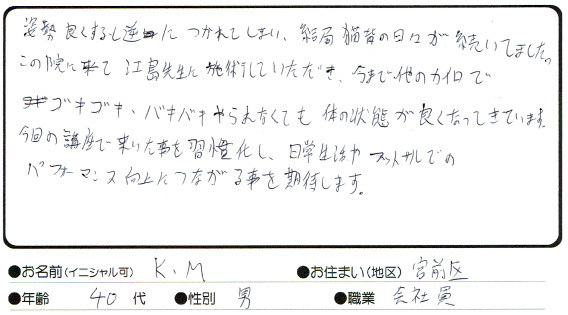 姿勢良くすると逆につかれてしまい、結局猫背の日々が続いてました。
この院に来て江島先生に施術していただき、今まで他のカイロで
ゴキゴキ、バキバキやられなくても体の状態が良くなってきています。
今回の講座で来いた事を習慣化し、日常生活やフットサルでの
パフォーマンス向上につながる事を期待します。
●お名前(イニシャル可) K.M ●お住まい(地区) 宮前区
●年齢 40 代 ●性別 男 ●職業 会社員